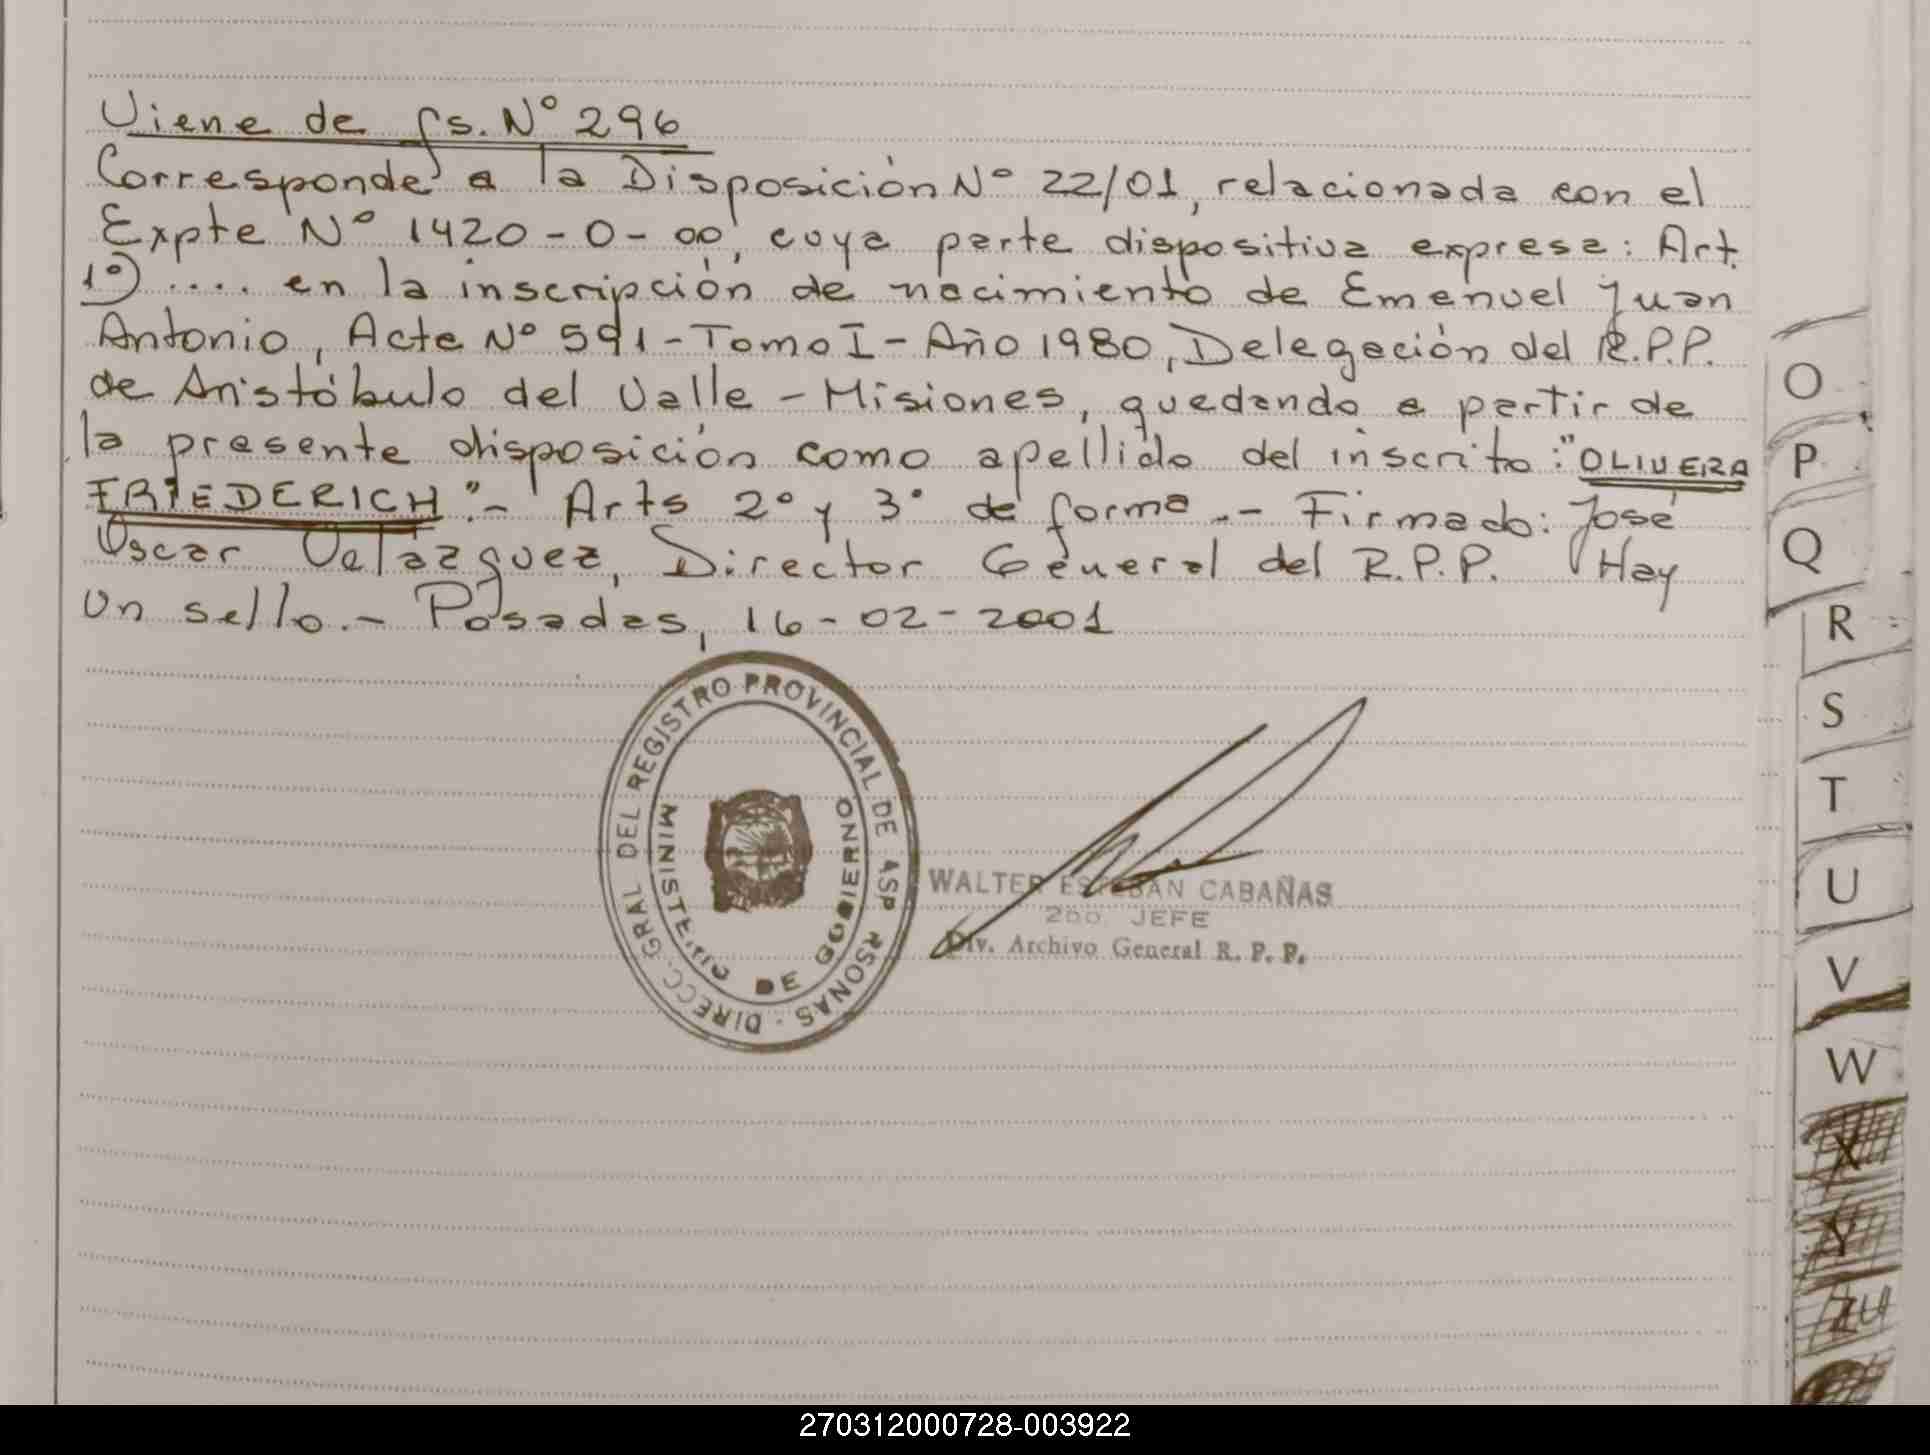 Viene de fs. N° 296
Corresponde a la Disposición N° 22/01, relacionada con el
Expte N° 1420-0-00, cuya parte dispositiva expresa: Art.
1°) .... en la inscripción de nacimiento de Emanuel Juan
Antonio, Acta N° 591-Tomo I-Año 1980, Delegación del R.P.P.
de Aristóbulo del Valle - Misiones, quedando a partir de
la presente disposición como apellido del inscrito: "OLIVERA
FRIEDERICH".- Arts 2° y 3° de forma.- Firmado: José
Oscar Velázquez, Director General del R.P.P. Hay
un sello.- Posadas, 16-02-2001
DIRECC. GRAL DEL REGISTRO PROVINCIAL DE
MINISTERIO DE GOBIERNO
WALTER ESTEBAN CABAÑAS
2do. JEFE
Div. Archivo General R. P. P.
O
P
Q
R
S
T
U
V
W
X
Y
Z
270312000728-003922